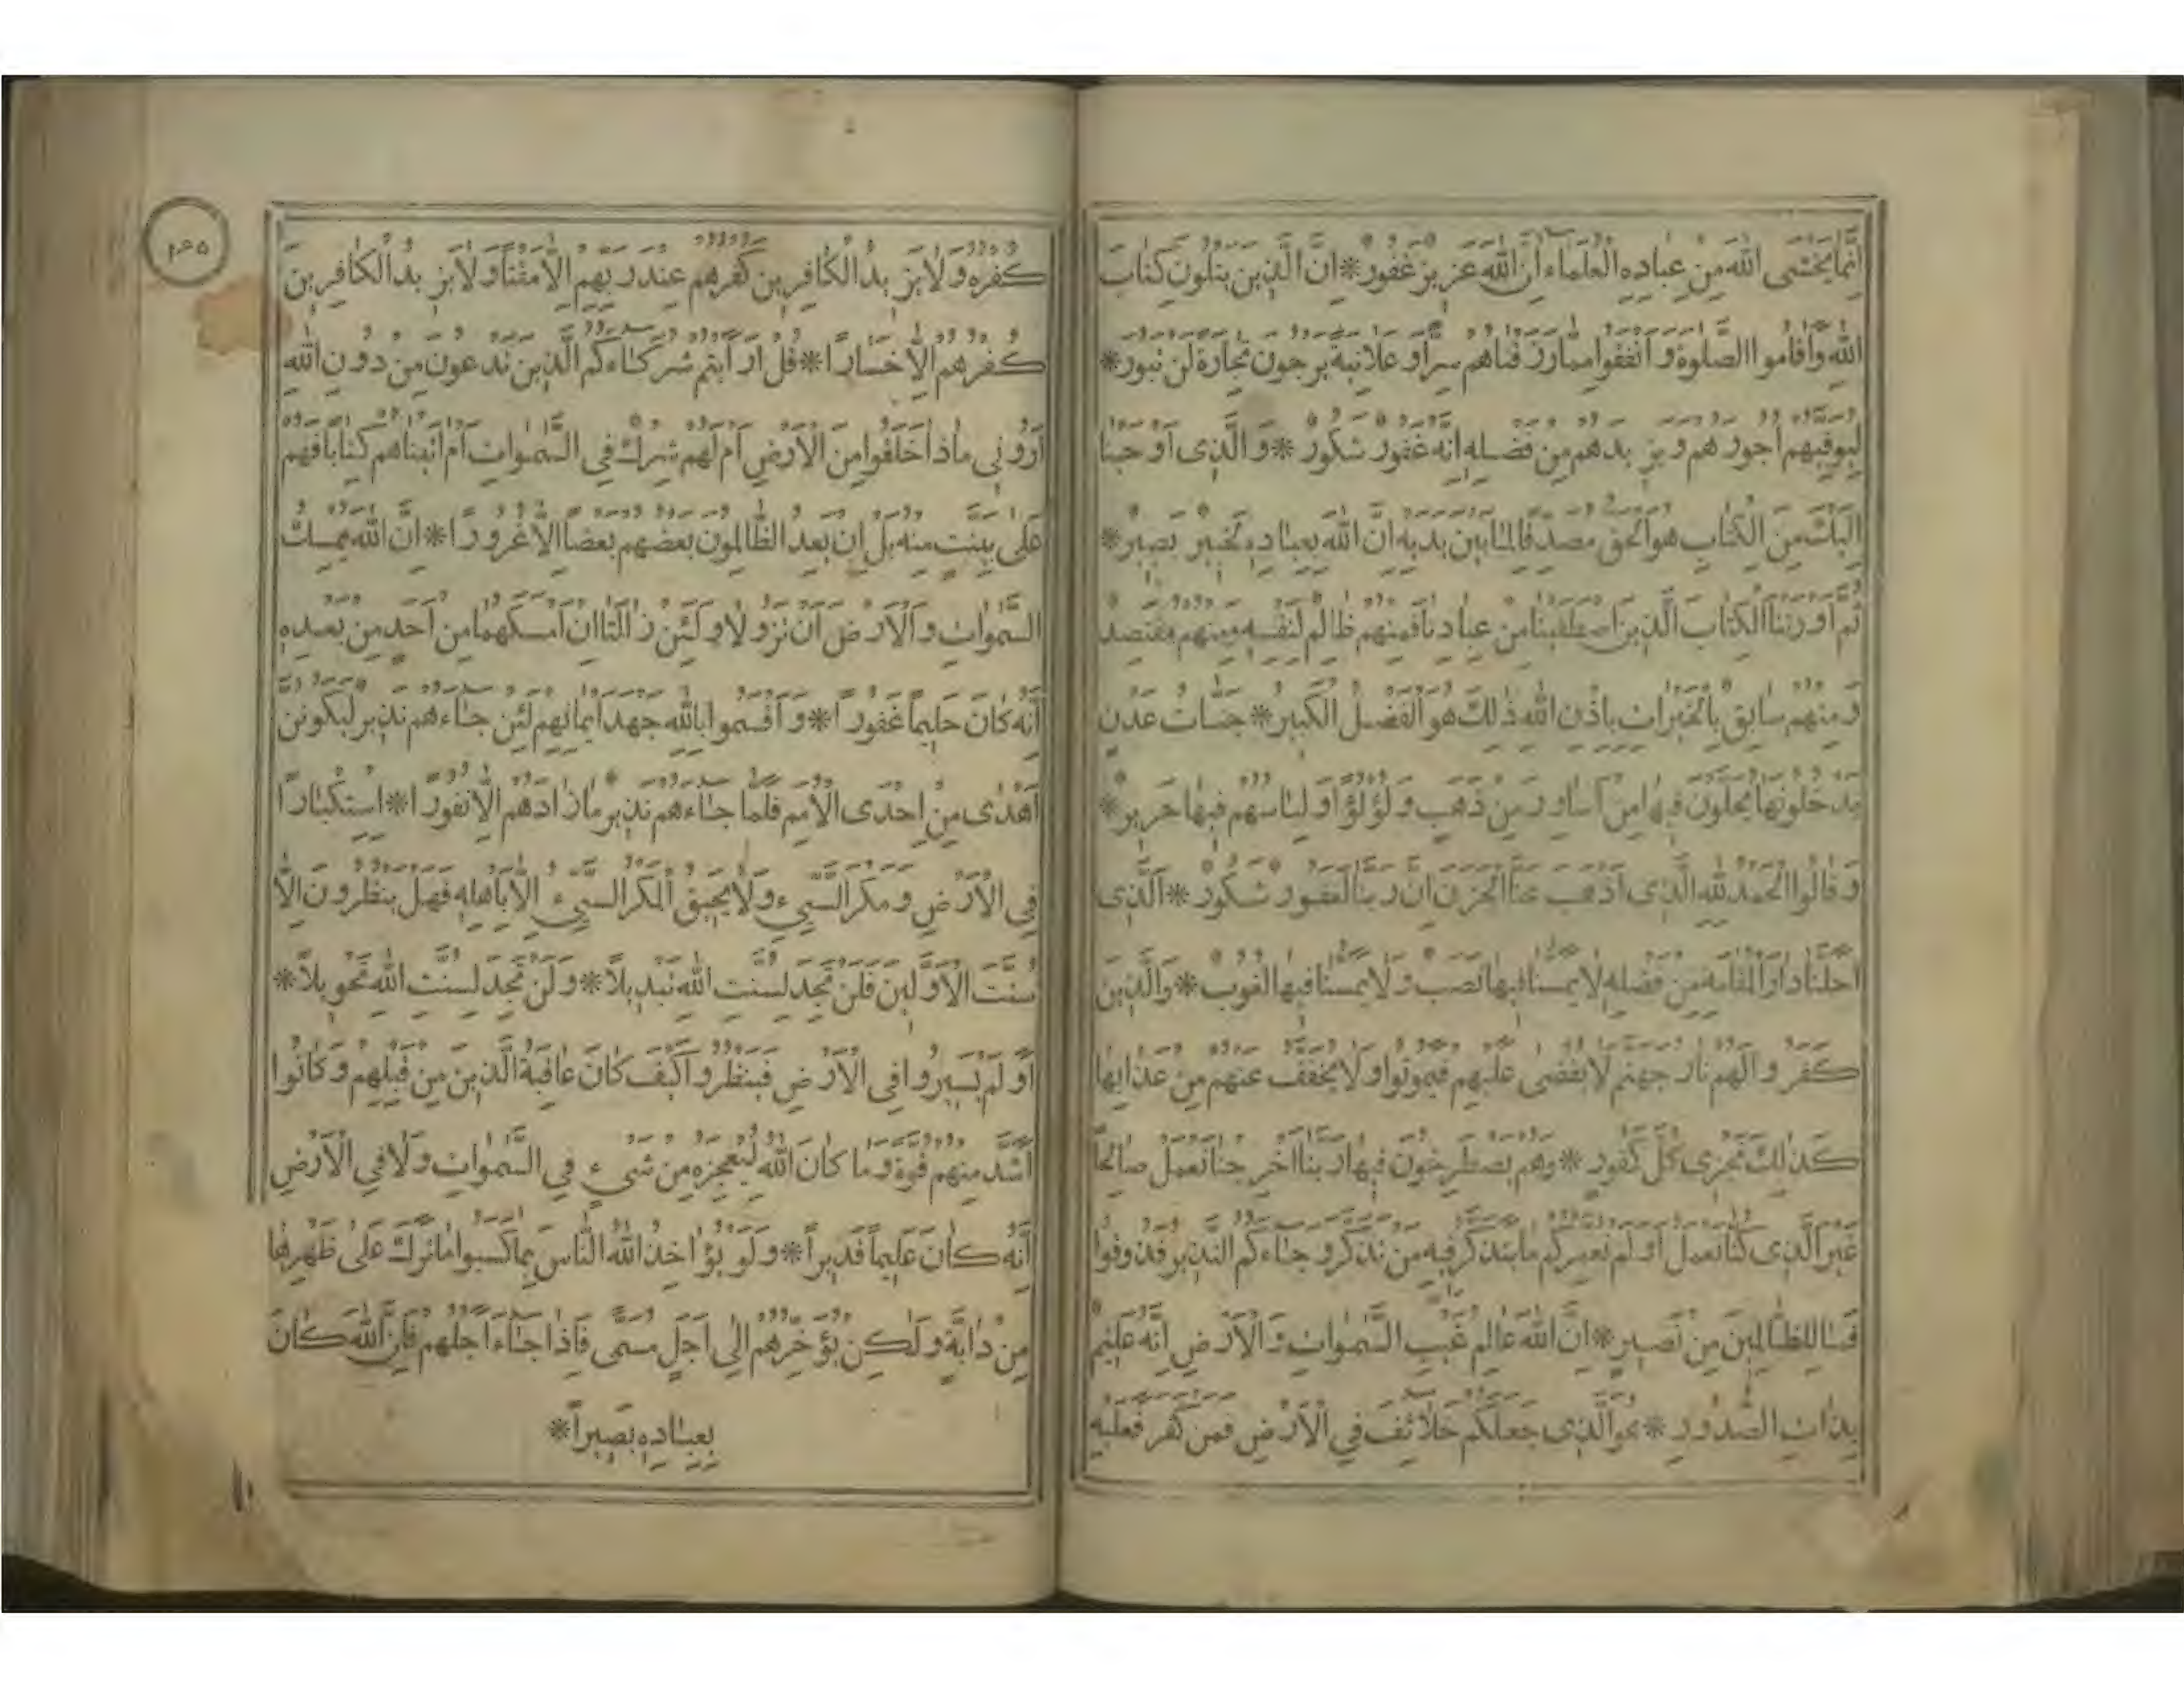 اِنَّمَا يَخْشَى اللّٰهَ مِنْ عِبَادِهِ الْعُلَمَاءُ اِنَّ اللّٰهَ عَزِيزٌ غَفُورٌ * اِنَّ الَّذِينَ يَتْلُونَ كِتَابَ
اللّٰهِ وَاَقَامُوا الصَّلٰوةَ وَاَنْفَقُوا مِمَّا رَزَقْنَاهُمْ سِرًّا وَعَلَانِيَةً يَرْجُونَ تِجَارَةً لَنْ تَبُورَ *
لِيُوَفِّيَهُمْ اُجُورَهُمْ وَيَزِيدَهُمْ مِنْ فَضْلِهِ اِنَّهُ غَفُورٌ شَكُورٌ * وَالَّذِى اَوْحَيْنَا
اِلَيْكَ مِنَ الْكِتَابِ هُوَ الْحَقُّ مُصَدِّقًا لِمَا بَيْنَ يَدَيْهِ اِنَّ اللّٰهَ بِعِبَادِهِ لَخَبِيرٌ بَصِيرٌ *
ثُمَّ اَوْرَثْنَا الْكِتَابَ الَّذِينَ اصْطَفَيْنَا مِنْ عِبَادِنَا فَمِنْهُمْ ظَالِمٌ لِنَفْسِهِ وَمِنْهُمْ مُقْتَصِدٌ
وَمِنْهُمْ سَابِقٌ بِالْخَيْرَاتِ بِاِذْنِ اللّٰهِ ذٰلِكَ هُوَ الْفَضْلُ الْكَبِيرُ * جَنَّاتُ عَدْنٍ
يَدْخُلُونَهَا يُحَلَّوْنَ فِيهَا مِنْ اَسَاوِرَ مِنْ ذَهَبٍ وَلُؤْلُؤًا وَلِبَاسُهُمْ فِيهَا حَرِيرٌ *
وَقَالُوا الْحَمْدُ لِلّٰهِ الَّذِى اَذْهَبَ عَنَّا الْحَزَنَ اِنَّ رَبَّنَا لَغَفُورٌ شَكُورٌ * اَلَّذِى
اَحَلَّنَا دَارَ الْمُقَامَةِ مِنْ فَضْلِهِ لَا يَمَسُّنَا فِيهَا نَصَبٌ وَلَا يَمَسُّنَا فِيهَا لُغُوبٌ * وَالَّذِينَ
كَفَرُوا لَهُمْ نَارُ جَهَنَّمَ لَا يُقْضٰى عَلَيْهِمْ فَيَمُوتُوا وَلَا يُخَفَّفُ عَنْهُمْ مِنْ عَذَابِهَا
كَذٰلِكَ نَجْزِى كُلَّ كَفُورٍ * وَهُمْ يَصْطَرِخُونَ فِيهَا رَبَّنَا اَخْرِجْنَا نَعْمَلْ صَالِحًا
غَيْرَ الَّذِى كُنَّا نَعْمَلُ اَوَلَمْ نُعَمِّرْكُمْ مَا يَتَذَكَّرُ فِيهِ مَنْ تَذَكَّرَ وَجَاءَكُمُ النَّذِيرُ فَذُوقُوا
فَمَا لِلظَّالِمِينَ مِنْ نَصِيرٍ * اِنَّ اللّٰهَ عَالِمُ غَيْبِ السَّمٰوَاتِ وَالْاَرْضِ اِنَّهُ عَلِيمٌ
بِذَاتِ الصُّدُورِ * هُوَ الَّذِى جَعَلَكُمْ خَلَائِفَ فِي الْاَرْضِ فَمَنْ كَفَرَ فَعَلَيْهِ
كُفْرُهُ وَلَا يَزِيدُ الْكَافِرِينَ كُفْرُهُمْ عِنْدَ رَبِّهِمْ اِلَّا مَقْتًا وَلَا يَزِيدُ الْكَافِرِينَ
كُفْرُهُمْ اِلَّا خَسَارًا * قُلْ اَرَاَيْتُمْ شُرَكَاءَكُمُ الَّذِينَ تَدْعُونَ مِنْ دُونِ اللّٰهِ
اَرُونِى مَاذَا خَلَقُوا مِنَ الْاَرْضِ اَمْ لَهُمْ شِرْكٌ فِي السَّمٰوَاتِ اَمْ اٰتَيْنَاهُمْ كِتَابًا فَهُمْ
عَلٰى بَيِّنَتٍ مِنْهُ بَلْ اِنْ يَعِدُ الظَّالِمُونَ بَعْضُهُمْ بَعْضًا اِلَّا غُرُورًا * اِنَّ اللّٰهَ يُمْسِكُ
السَّمٰوَاتِ وَالْاَرْضَ اَنْ تَزُولَا وَلَئِنْ زَالَتَا اِنْ اَمْسَكَهُمَا مِنْ اَحَدٍ مِنْ بَعْدِهِ
اِنَّهُ كَانَ حَلِيمًا غَفُورًا * وَاَقْسَمُوا بِاللّٰهِ جَهْدَ اَيْمَانِهِمْ لَئِنْ جَاءَهُمْ نَذِيرٌ لَيَكُونُنَّ
اَهْدٰى مِنْ اِحْدَى الْاُمَمِ فَلَمَّا جَاءَهُمْ نَذِيرٌ مَا زَادَهُمْ اِلَّا نُفُورًا * اِسْتِكْبَارًا
فِي الْاَرْضِ وَمَكْرَ السَّيِّئِ وَلَا يَحِيقُ الْمَكْرُ السَّيِّئُ اِلَّا بِاَهْلِهِ فَهَلْ يَنْظُرُونَ اِلَّا
سُنَّتَ الْاَوَّلِينَ فَلَنْ تَجِدَ لِسُنَّتِ اللّٰهِ تَبْدِيلًا * وَلَنْ تَجِدَ لِسُنَّتِ اللّٰهِ تَحْوِيلًا *
اَوَلَمْ يَسِيرُوا فِي الْاَرْضِ فَيَنْظُرُوا كَيْفَ كَانَ عَاقِبَةُ الَّذِينَ مِنْ قَبْلِهِمْ وَكَانُوا
اَشَدَّ مِنْهُمْ قُوَّةً وَمَا كَانَ اللّٰهُ لِيُعْجِزَهُ مِنْ شَىْءٍ فِي السَّمٰوَاتِ وَلَا فِي الْاَرْضِ
اِنَّهُ كَانَ عَلِيمًا قَدِيرًا * وَلَوْ يُؤَاخِذُ اللّٰهُ النَّاسَ بِمَا كَسَبُوا مَا تَرَكَ عَلٰى ظَهْرِهَا
مِنْ دَابَّةٍ وَلٰكِنْ يُؤَخِّرُهُمْ اِلٰى اَجَلٍ مُسَمًّى فَاِذَا جَاءَ اَجَلُهُمْ فَاِنَّ اللّٰهَ كَانَ
بِعِبَادِهِ بَصِيرًا *